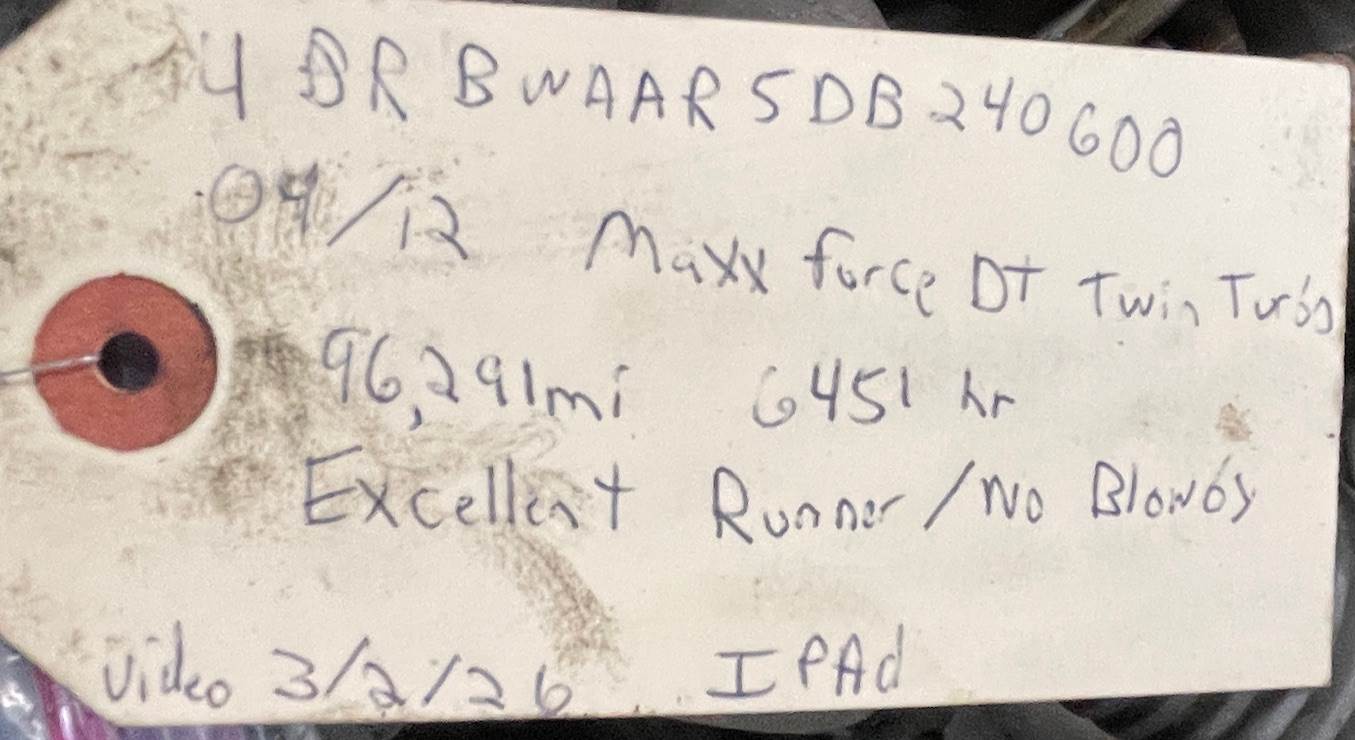 4DRBWAAR5DB240600
04/12 Maxxforce DT Twin Turbo
96,291mi 6451 hr
Excellent Runner/No Blowby
Video 3/2/26 IPAd